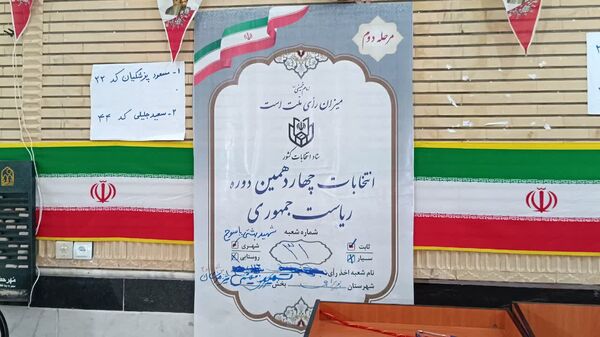 ۱- مسعود پزشکیان کد ۲۲
۲- سعید جلیلی کد ۴۴
مرحله دوم
میزان رأی ملت است
ستاد انتخابات کشور
انتخابات چهاردهمین دوره
ریاست جمهوری
شماره شعبه
ثابت
شهری
۱۳۱
سیار
روستایی
نام شعبه اخذ رأی
شهرستان
بخش